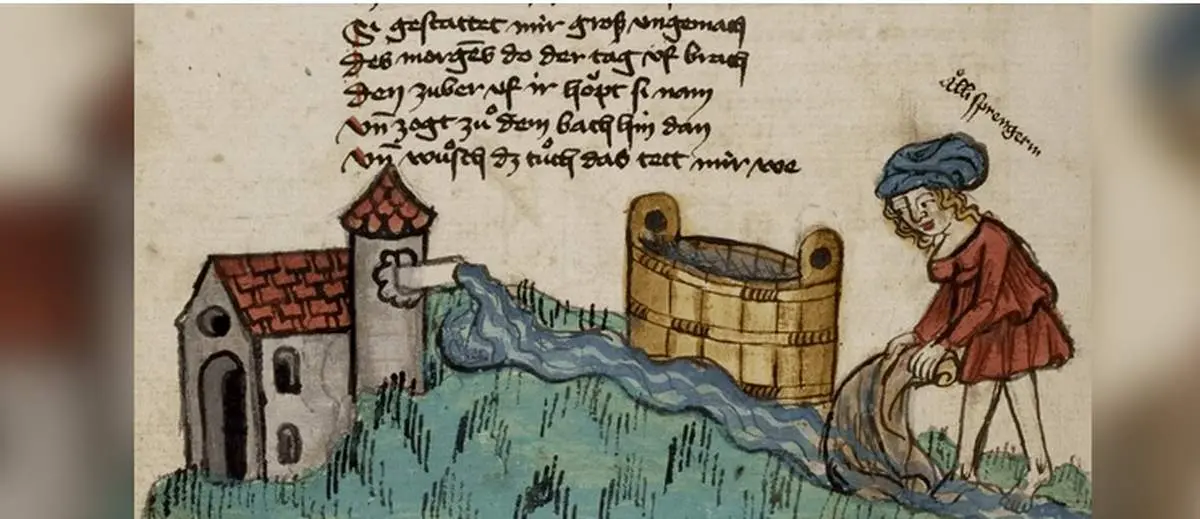 Si gestattet mir groß vngemach
des morgēs do der tag vf brach
den zuber vf ir hoͮpt si nam
vn̄ zogt zuͦ dem bach hin dan
vn̄ wuͦsch dz tuͦch das tett mir we
ålli sprengerin